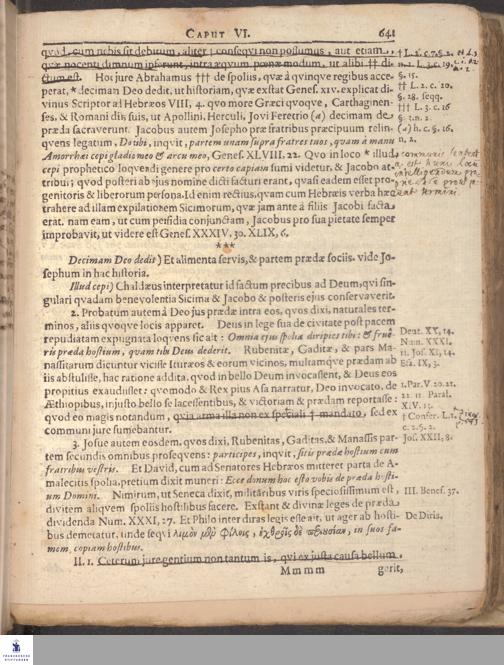 CAPUT VI. 641
quod, cum nobis sit debitum, aliter conseqvi non possumus, aut etiam
quæ nocenti damnum inferunt, intra æqvum pœnæ modum, ut alibi †† di-
ctum est. Hoc jure Abrahamus ††† de spoliis, quæ à qvinqve regibus acce-
perat, * decimam Deo dedit, ut historiam, quæ exstat Genes. XIV. explicat di-
vinus Scriptor ad Hebræos VIII, 4. quo more Græci qvoqve, Carthaginen-
ses, & Romani diis suis, ut Apollini, Herculi, Jovi Feretrio (a) decimam de
præda sacraverunt. Jacobus autem Josepho præ fratribus præcipuum relin-
qvens legatum, Do tibi, inqvit, partem unam supra fratres tuos, quam à manu
Amorrhæi cepi gladio meo & arcu meo, Genes. XLVIII. 22. Quo in loco * illud
cepi prophetico loqvendi genere pro certo capiam sumi videtur, & Jacobo at-
tribui; qvod posteri ab ejus nomine dicti facturi erant, quasi eadem esset pro-
genitoris & liberorum persona. Id enim rectius, quam cum Hebræis verba hæc
trahere ad illam expilationem Sicimorum, quæ jam ante à filiis Jacobi facta
erat. nam eam, ut cum perfidia conjunctam, Jacobus pro sua pietate semper
improbavit, ut videre est Genes. XXXIV. 30. XLIX, 6.
***
Decimam Deo dedit) Et alimenta servis, & partem prædæ sociis. vide Jo-
sephum in hac historia.
Illud cepi) Chaldæus interpretatur id factum precibus ad Deum, qvi sin-
gulari qvadam benevolentia Sicima & Jacobo & posteris ejus conservaverit.
2. Probatum autem à Deo jus prædæ intra eos, quos dixi, naturales ter-
minos, aliis quoqve locis apparet. Deus in lege sua de civitate post pacem
repudiatam expugnata loqvens sic ait: Omnia ejus spolia diripies tibi: & frue-
ris præda hostium, quam tibi Deus dederit. Rubenitæ, Gaditæ, & pars Ma-
nassitarum dicuntur vicisse Ituræos & eorum vicinos, multamqve prædam ab
iis abstulisse, hac ratione addita, quod in bello Deum invocassent, & Deus eos
propitius exaudiisset: quemodo & Rex pius Asa narratur, Deo invocato, de
Æthiopibus, injusto bello se lacessentibus, & victoriam & prædam reportasse:
quod eo magis notandum, quia arma illa non ex speciali † mandato, sed ex
communi jure sumebantur.
3. Josue autem eosdem, quos dixi, Rubenitas, Gaditas, & Manassis par-
tem secundis omnibus proseqvens: participes, inqvit, sitis prædæ hostium cum
fratribus vestris. Et David, cum ad Senatores Hebræos mitteret parta de A-
malecitis spolia, pretium dixit muneri: Ecce donum hoc esto vobis de præda hosti-
um Domini. Nimirum, ut Seneca dixit, militaribus viris speciosissimum est,
divitem aliqvem spoliis hostilibus facere. Exstant & divinæ leges de præda
dividenda Num. XXXI, 27. Et Philo inter diras legis esse ait, ut ager ab hosti-
bus demetatur, unde seqvi λιμὸν μὲν φίλοις, ἐχθροῖς δὲ περιουσίαν, in suos fa-
mem, copiam hostibus.
II. 1. Ceterum jure gentium non tantum is, qvi ex justa causa bellum
Mmmm gerit,
† L. 2. c. 7. §. 2.
n. 2. L. 3. c. 19.
§. 15.
†† L. 2. c. 20.
§. 28. seqq.
††† L. 3. c. 16
§. 1. n. 2.
(a) h. c. §. 16.
n. 2.
Deut. XX, 14.
Num. XXXI.
11. Jos. XI, 14.
Esa. IX, 3.
1. Par. V. 20. 21.
22. 11. Paral.
XIV. 13.
† Confer. L. 2.
c. 2. §. 2.
Jos. XXII, 8.
III. Benef. 37.
De Diris.
FRANCKESCHE
STIFTUNGEN